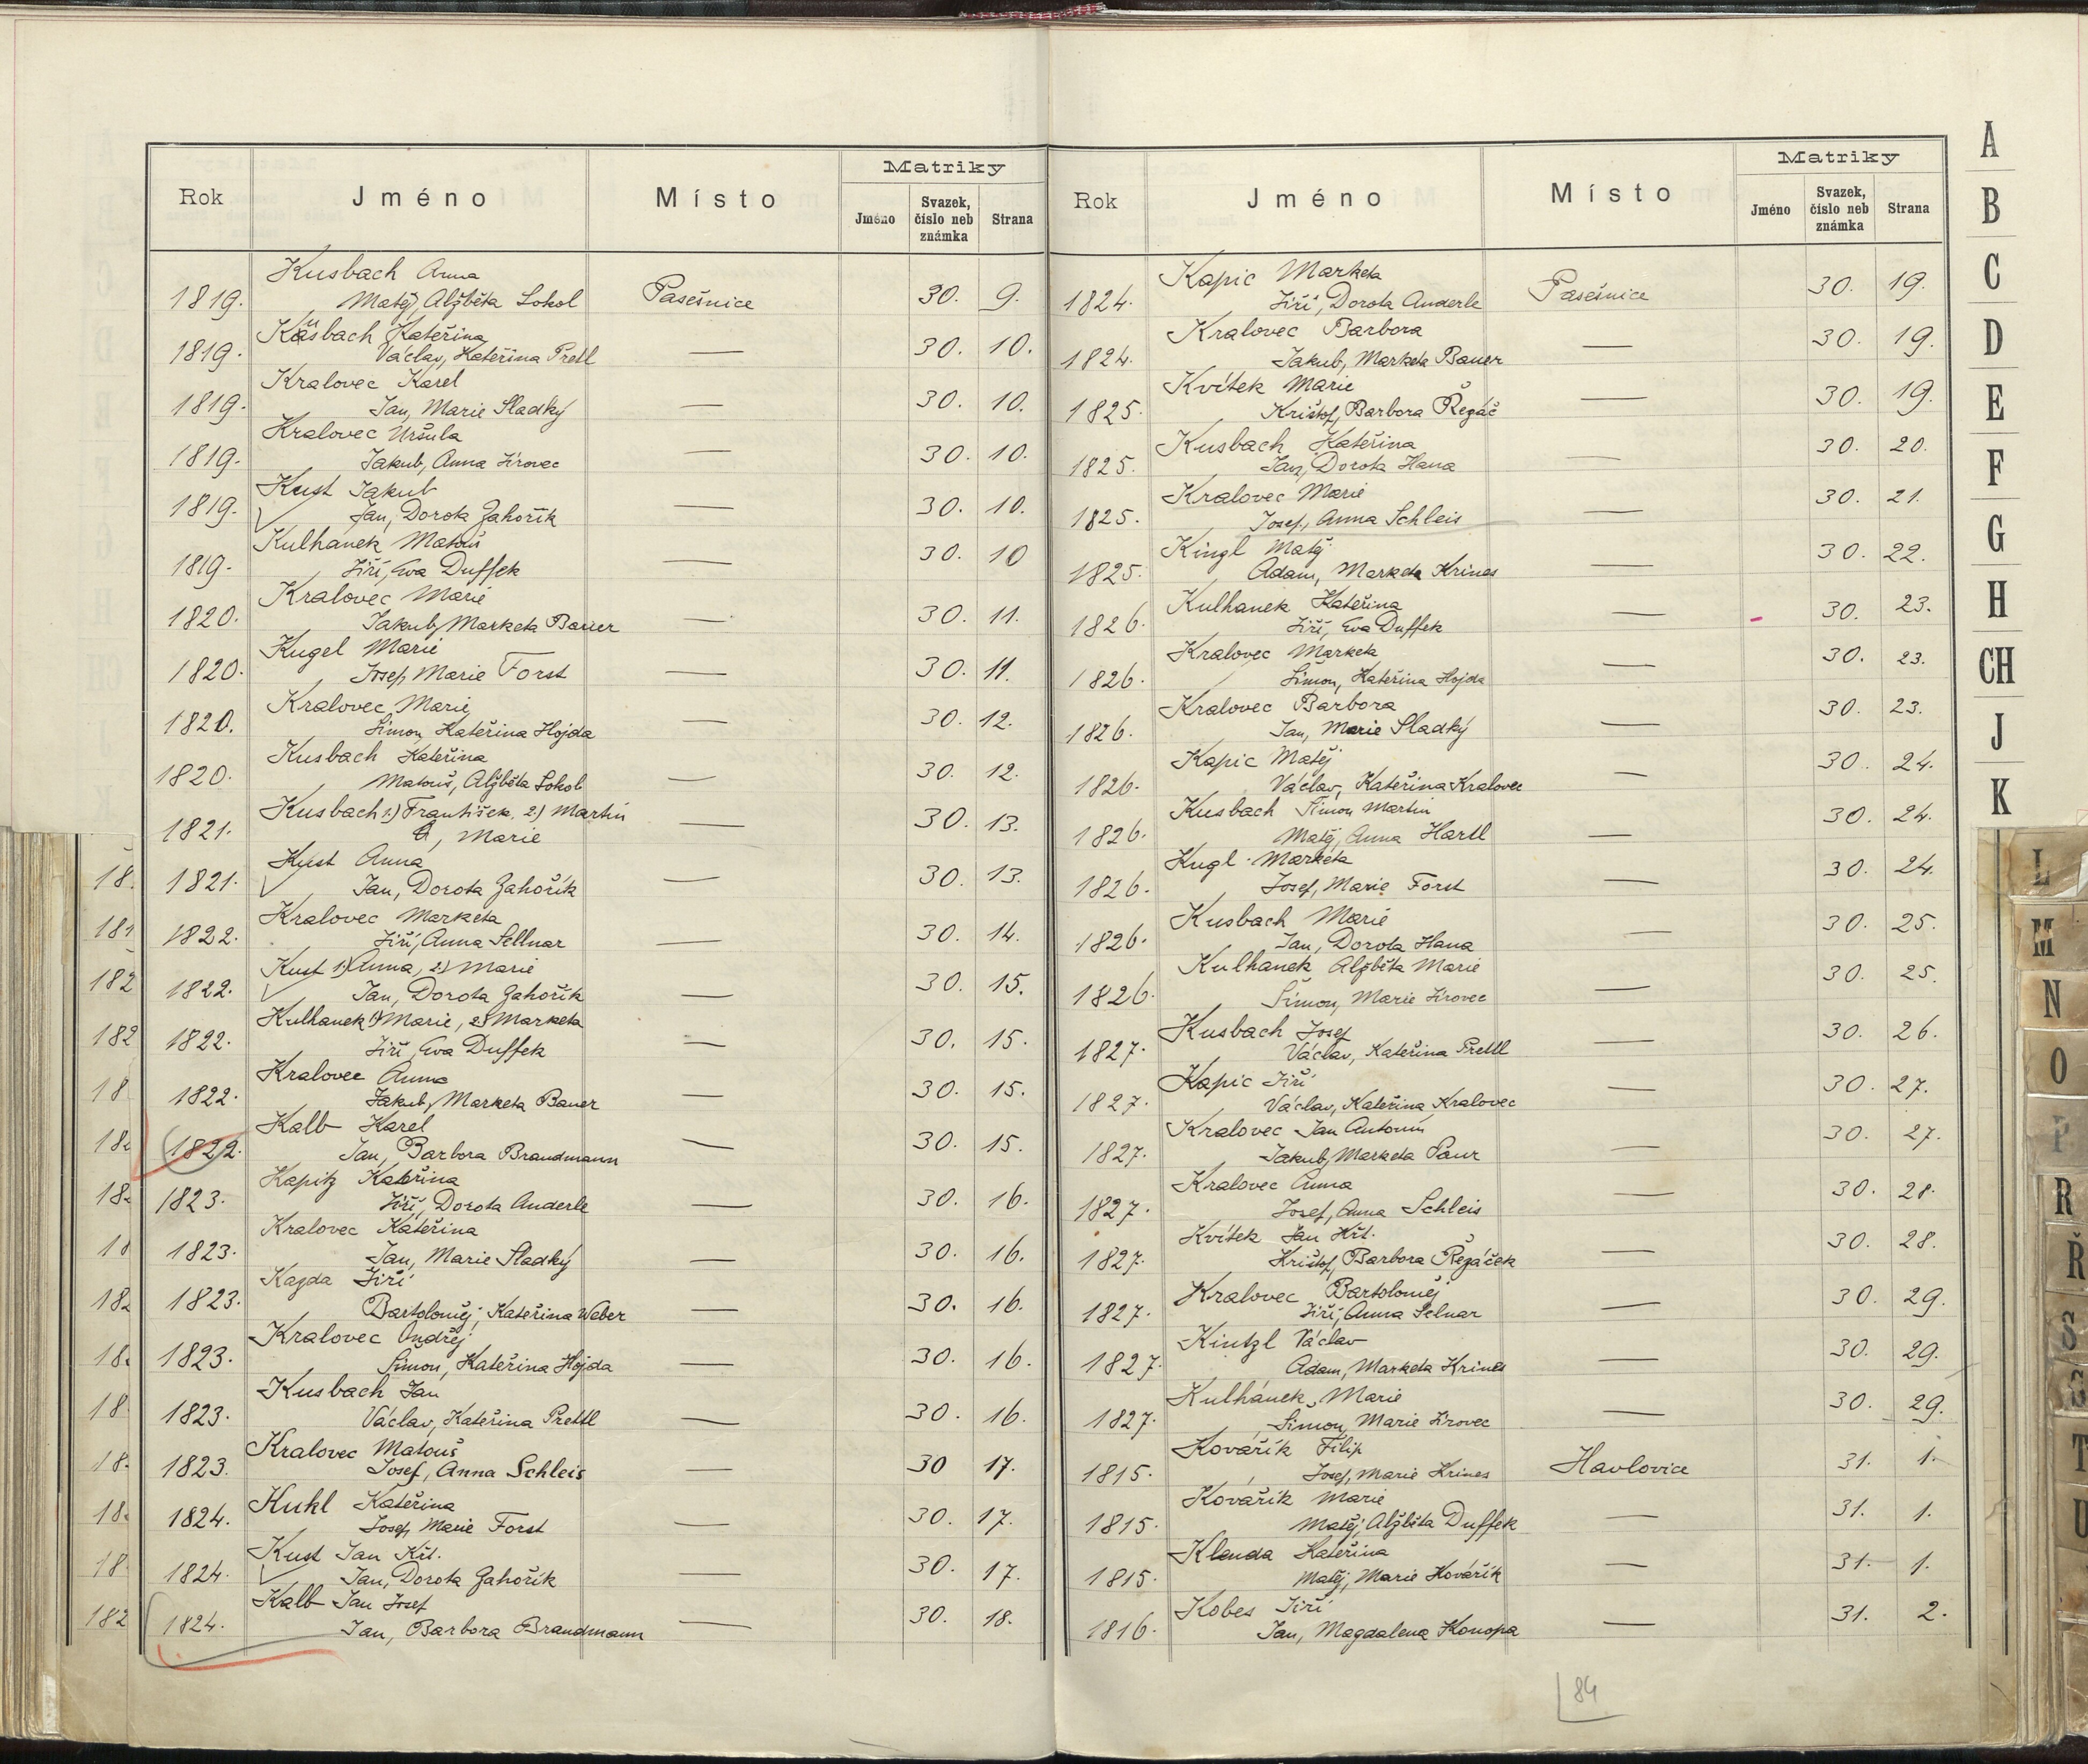 Rok Jméno Místo Matriky
Jméno Svazek, číslo neb známka Strana
Kusbach Anna
1819. Matěj, Alžběta Sokol Pasešnice 30. 9.
Kusbach Kateřina
1819. Václav, Kateřina Pretl — 30. 10.
Kralovec Karel
1819. Jan, Marie Sladký — 30. 10.
Kralovec Uršula
1819. Jakub, Anna Jírovec — 30. 10.
Kust Jakub
1819. Jan, Dorota Zahořík — 30. 10.
Kulhanek Matouš
1819. Jiří, Eva Duffek — 30. 10
Kralovec Marie
1820. Jakub, Marketa Bauer — 30. 11.
Kugel Marie
1820. Josef, Marie Forst — 30. 11.
Kralovec Marie
1820. Šimon, Kateřina Hojda — 30. 12.
Kusbach Kateřina
1820. Matouš, Alžběta Sokol — 30. 12.
Kusbach 1.) František, 2.) Martin
1821. , Marie — 30. 13.
Kust Anna
1821. Jan, Dorota Zahořík — 30. 13.
Kralovec Marketa
1822. Jiří, Anna Sellnar — 30. 14.
Kust 1.) Anna, 2.) Marie
1822. Jan, Dorota Zahořík — 30. 15.
Kulhanek 1) Marie, 2.) Marketa
1822. Jiří, Eva Duffek — 30. 15.
Kralovec Anna
1822. Jakub, Marketa Bauer — 30. 15.
Kalb Karel
1822. Jan, Barbora Brandmann — 30. 15.
Kapitz Kateřina
1823. Jiří, Dorota Anderle — 30. 16.
Kralovec Kateřina
1823. Jan, Marie Sladký — 30. 16.
Kazda Jiří
1823. Bartoloměj, Kateřina Weber — 30. 16.
Kralovec Ondřej
1823. Šimon, Kateřina Hojda — 30. 16.
Kusbach Jan
1823. Václav, Kateřina Prettl — 30. 16.
Kralovec Matouš
1823. Josef, Anna Schleis — 30 17.
Kukl Kateřina
1824. Josef, Marie Forst — 30. 17.
Kust Jan Křt.
1824. Jan, Dorota Zahořík — 30. 17.
Kalb Jan Josef
1824. Jan, Barbora Brandmann — 30. 18.
Rok Jméno Místo Matriky
Jméno Svazek, číslo neb známka Strana
Kapic Marketa
1824. Jiří, Dorota Anderle Pasešnice 30. 19.
Kralovec Barbora
1824. Jakub, Marketa Bauer — 30. 19.
Kvítek Marie
1825. Krištof, Barbora Řezáč — 30. 19.
Kusbach Kateřina
1825. Jan, Dorota Hana — 30. 20.
Kralovec Marie
1825. Josef, Anna Schleis — 30. 21.
Kingl Matěj
1825. Adam, Marketa Krines — 30. 22.
Kulhanek Kateřina
1826. Jiří, Eva Duffek — 30. 23.
Kralovec Marketa
1826. Šimon, Kateřina Hojda — 30. 23.
Kralovec Barbora
1826. Jan, Marie Sladký — 30. 23.
Kapic Matěj
1826. Václav, Kateřina Kralovec — 30. 24.
Kusbach Šimon Martin
1826. Matěj, Anna Hartl — 30. 24.
Kugl Marketa
1826. Josef, Marie Forst — 30. 24.
Kusbach Marie
1826. Jan, Dorota Hana — 30. 25.
Kulhanek Alžběta Marie
1826. Šimon, Marie Jírovec — 30. 25.
Kusbach Josef
1827. Václav, Kateřina Prettl — 30. 26.
Kapic Jiří
1827. Václav, Kateřina Kralovec — 30. 27.
Kralovec Jan Antonín
1827. Jakub, Marketa Paur — 30. 27.
Kralovec Anna
1827. Josef, Anna Schleis — 30. 28.
Kvítek Jan Křt.
1827. Krištof, Barbora Řezáček — 30. 28.
Kralovec Bartoloměj
1827. Jiří, Anna Selnar — 30. 29.
Kintzl Václav
1827. Adam, Marketa Krines — 30. 29.
Kulhánek, Marie
1827. Šimon, Marie Jírovec — 30. 29.
Kovařík Filip
1815. Josef, Marie Krines Havlovice 31. 1.
Kovařík Marie
1815. Matěj, Alžběta Duffek — 31. 1.
Klenda Kateřina
1815. Matěj, Marie Kovářík — 31. 1.
Kobes Jiří
1816. Jan, Magdalena Konopa — 31. 2.
84
A
B
C
D
E
F
G
H
CH
J
K
L
M
N
O
P
R
Ř
S
T
U